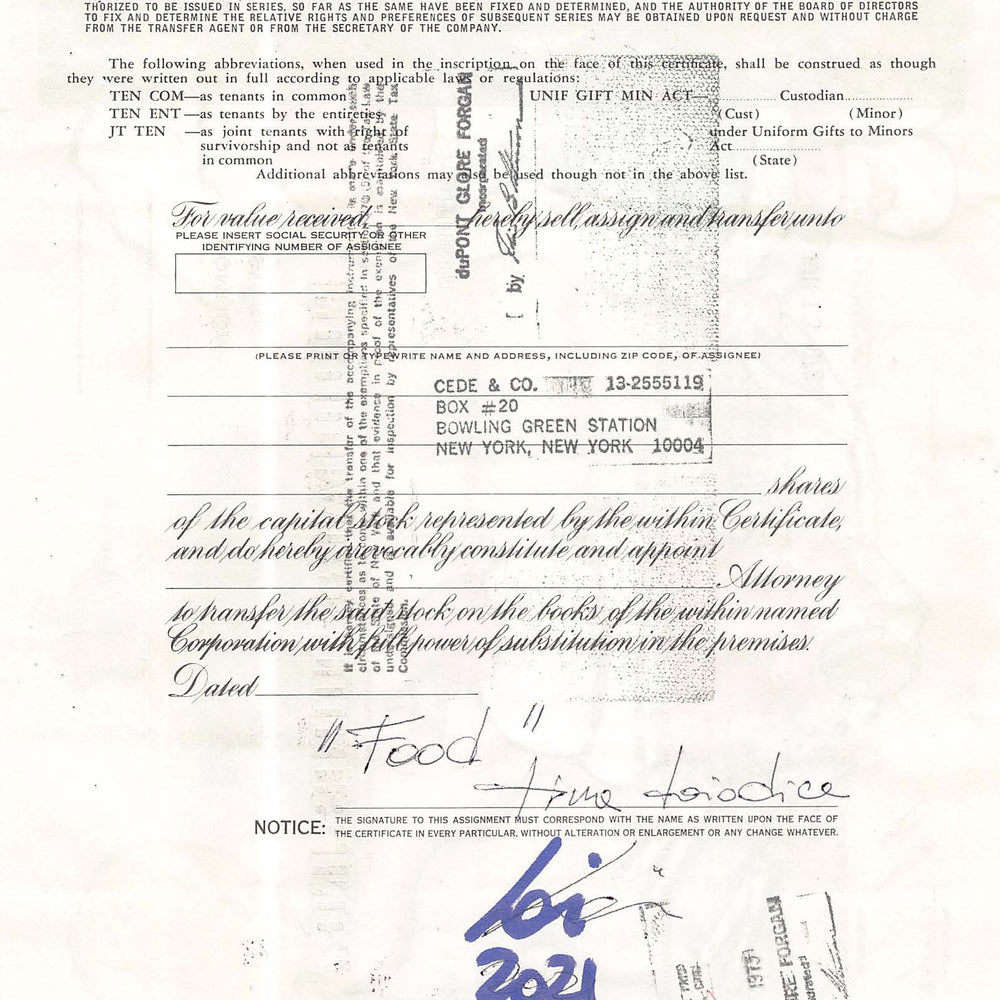 THORIZED TO BE ISSUED IN SERIES, SO FAR AS THE SAME HAVE BEEN FIXED AND DETERMINED, AND THE AUTHORITY OF THE BOARD OF DIRECTORS
TO FIX AND DETERMINE THE RELATIVE RIGHTS AND PREFERENCES OF SUBSEQUENT SERIES MAY BE OBTAINED UPON REQUEST AND WITHOUT CHARGE
FROM THE TRANSFER AGENT OR FROM THE SECRETARY OF THE COMPANY.
The following abbreviations, when used in the inscription on the face of this certificate, shall be construed as though
they were written out in full according to applicable laws or regulations:
TEN COM—as tenants in common UNIF GIFT MIN ACT— Custodian
TEN ENT—as tenants by the entireties (Cust) (Minor)
JT TEN —as joint tenants with right of under Uniform Gifts to Minors
survivorship and not as tenants Act
in common (State)
Additional abbreviations may also be used though not in the above list.
For value received, hereby sell, assign and transfer unto
PLEASE INSERT SOCIAL SECURITY OR OTHER
IDENTIFYING NUMBER OF ASSIGNEE
(PLEASE PRINT OR TYPEWRITE NAME AND ADDRESS, INCLUDING ZIP CODE, OF ASSIGNEE)
CEDE & CO. 13-2555119
BOX #20
BOWLING GREEN STATION
NEW YORK, NEW YORK 10004
shares
of the capital stock represented by the within Certificate,
and do hereby irrevocably constitute and appoint
Attorney
to transfer the said stock on the books of the within named
Corporation with full power of substitution in the premises.
Dated
"Food"
NOTICE: THE SIGNATURE TO THIS ASSIGNMENT MUST CORRESPOND WITH THE NAME AS WRITTEN UPON THE FACE OF
THE CERTIFICATE IN EVERY PARTICULAR, WITHOUT ALTERATION OR ENLARGEMENT OR ANY CHANGE WHATEVER.
2021
duPONT GLORE FORGAN
Incorporated
by
It is hereby certified that the transfer of the accompanying instrument is made under such
circumstances as to come within one of the exemptions specified in section 270 of the Tax Law
of the State of New York and that evidence in proof of the exemption is maintained by the
undersigned and is available for inspection by representatives of the New York State Tax
Commission.
1973
RE FORGAN